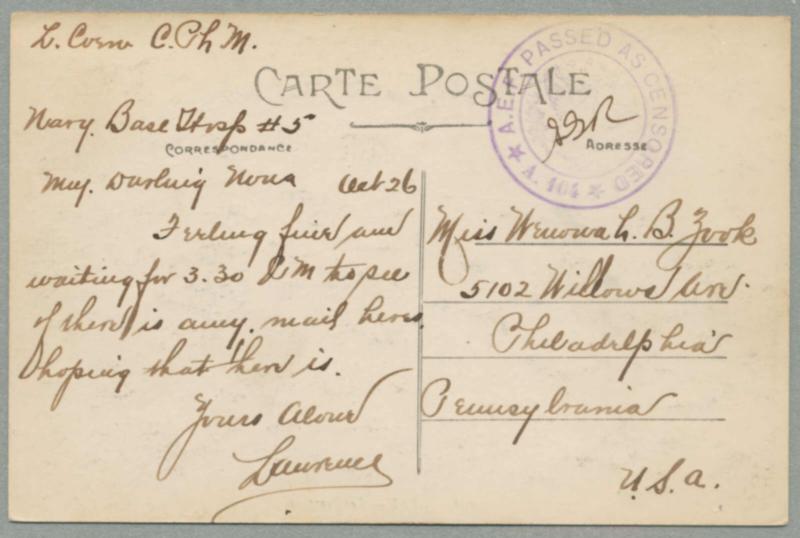 L. Coen C.Ph M.
CARTE POSTALE
A.E.F. PASSED AS CENSORED
A. 404
Navy. Base Hosp #5
CORRESPONDANCE
ADRESSE
My. Darling Nona Oct 26
Feeling fine and
waiting for 3.30 P M to see
if there is any. mail here.
hoping that there is.
Yours Alone
Lawrence
Miss Wenona L. B. Zook
5102 Willows Ave.
Philadelphia
Pennsylvania
U.S.A.